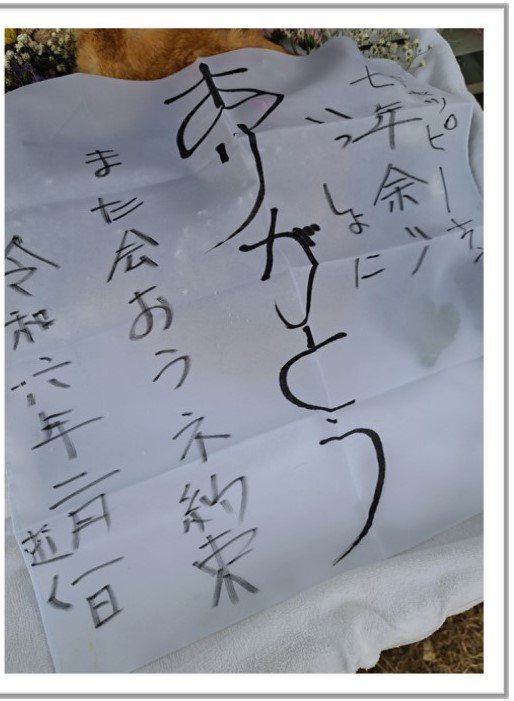 ッピー
七年余り
いっしょに
ありがとう
また会おうネ約束
令和六年二月一日
逝く